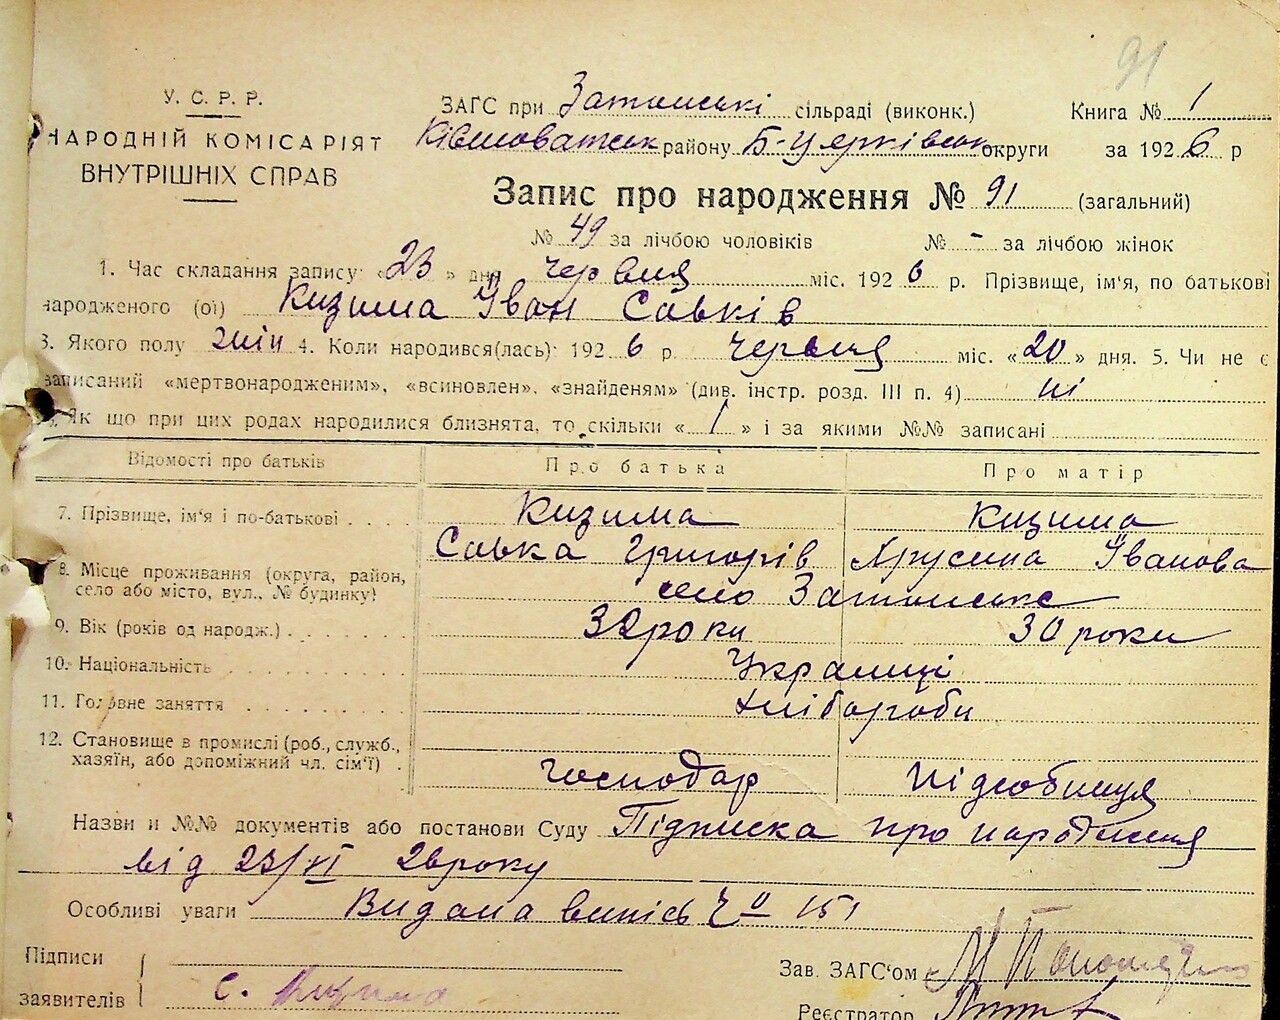 91
У. С. Р. Р.
НАРОДНІЙ КОМІСАРІЯТ
ВНУТРІШНІХ СПРАВ
ЗАГС при Затонські сільраді (виконк.) Книга № 1
району Б-Церківськ округи за 1926 р
Запис про народження № 91 (загальний)
№ 49 за лічбою чоловіків № - за лічбою жінок
1. Час складання запису: «23» дня червця міс. 1926 р. Прізвище, ім'я, по батькові
народженого (ої) Кизима Іван Савків
3. Якого полу 4. Коли народився(лась): 1926 р червця міс. «20» дня. 5. Чи не є
записаний «мертвонародженим», «всиновлен», «знайденям» (див. інстр. розд. III п. 4) ні
Як що при цих родах народилися близнята, то скільки «1» і за якими №№ записані
Відомості про батьків Про батька Про матір
7. Прізвище, ім'я і по-батькові Кизима Кизима
Савка Григорів Хрусина Іванова
8. Місце проживання (округа, район,
село або місто, вул., № будинку) село Затонське
9. Вік (років од народж.) 32 роки 30 роки
10. Національність Українці
11. Головне заняття хліборoби
12. Становище в промислі (роб., служб.,
хазяїн, або допоміжний чл. сім'ї) господар підсобниця
Назви и №№ документів або постанови Суду Підписка про народження
від 23/VI 26 року
Особливі уваги Видана випісь Ч° 151
Підписи
заявителів С. Кизима
Зав. ЗАГС'ом
Реєстратор